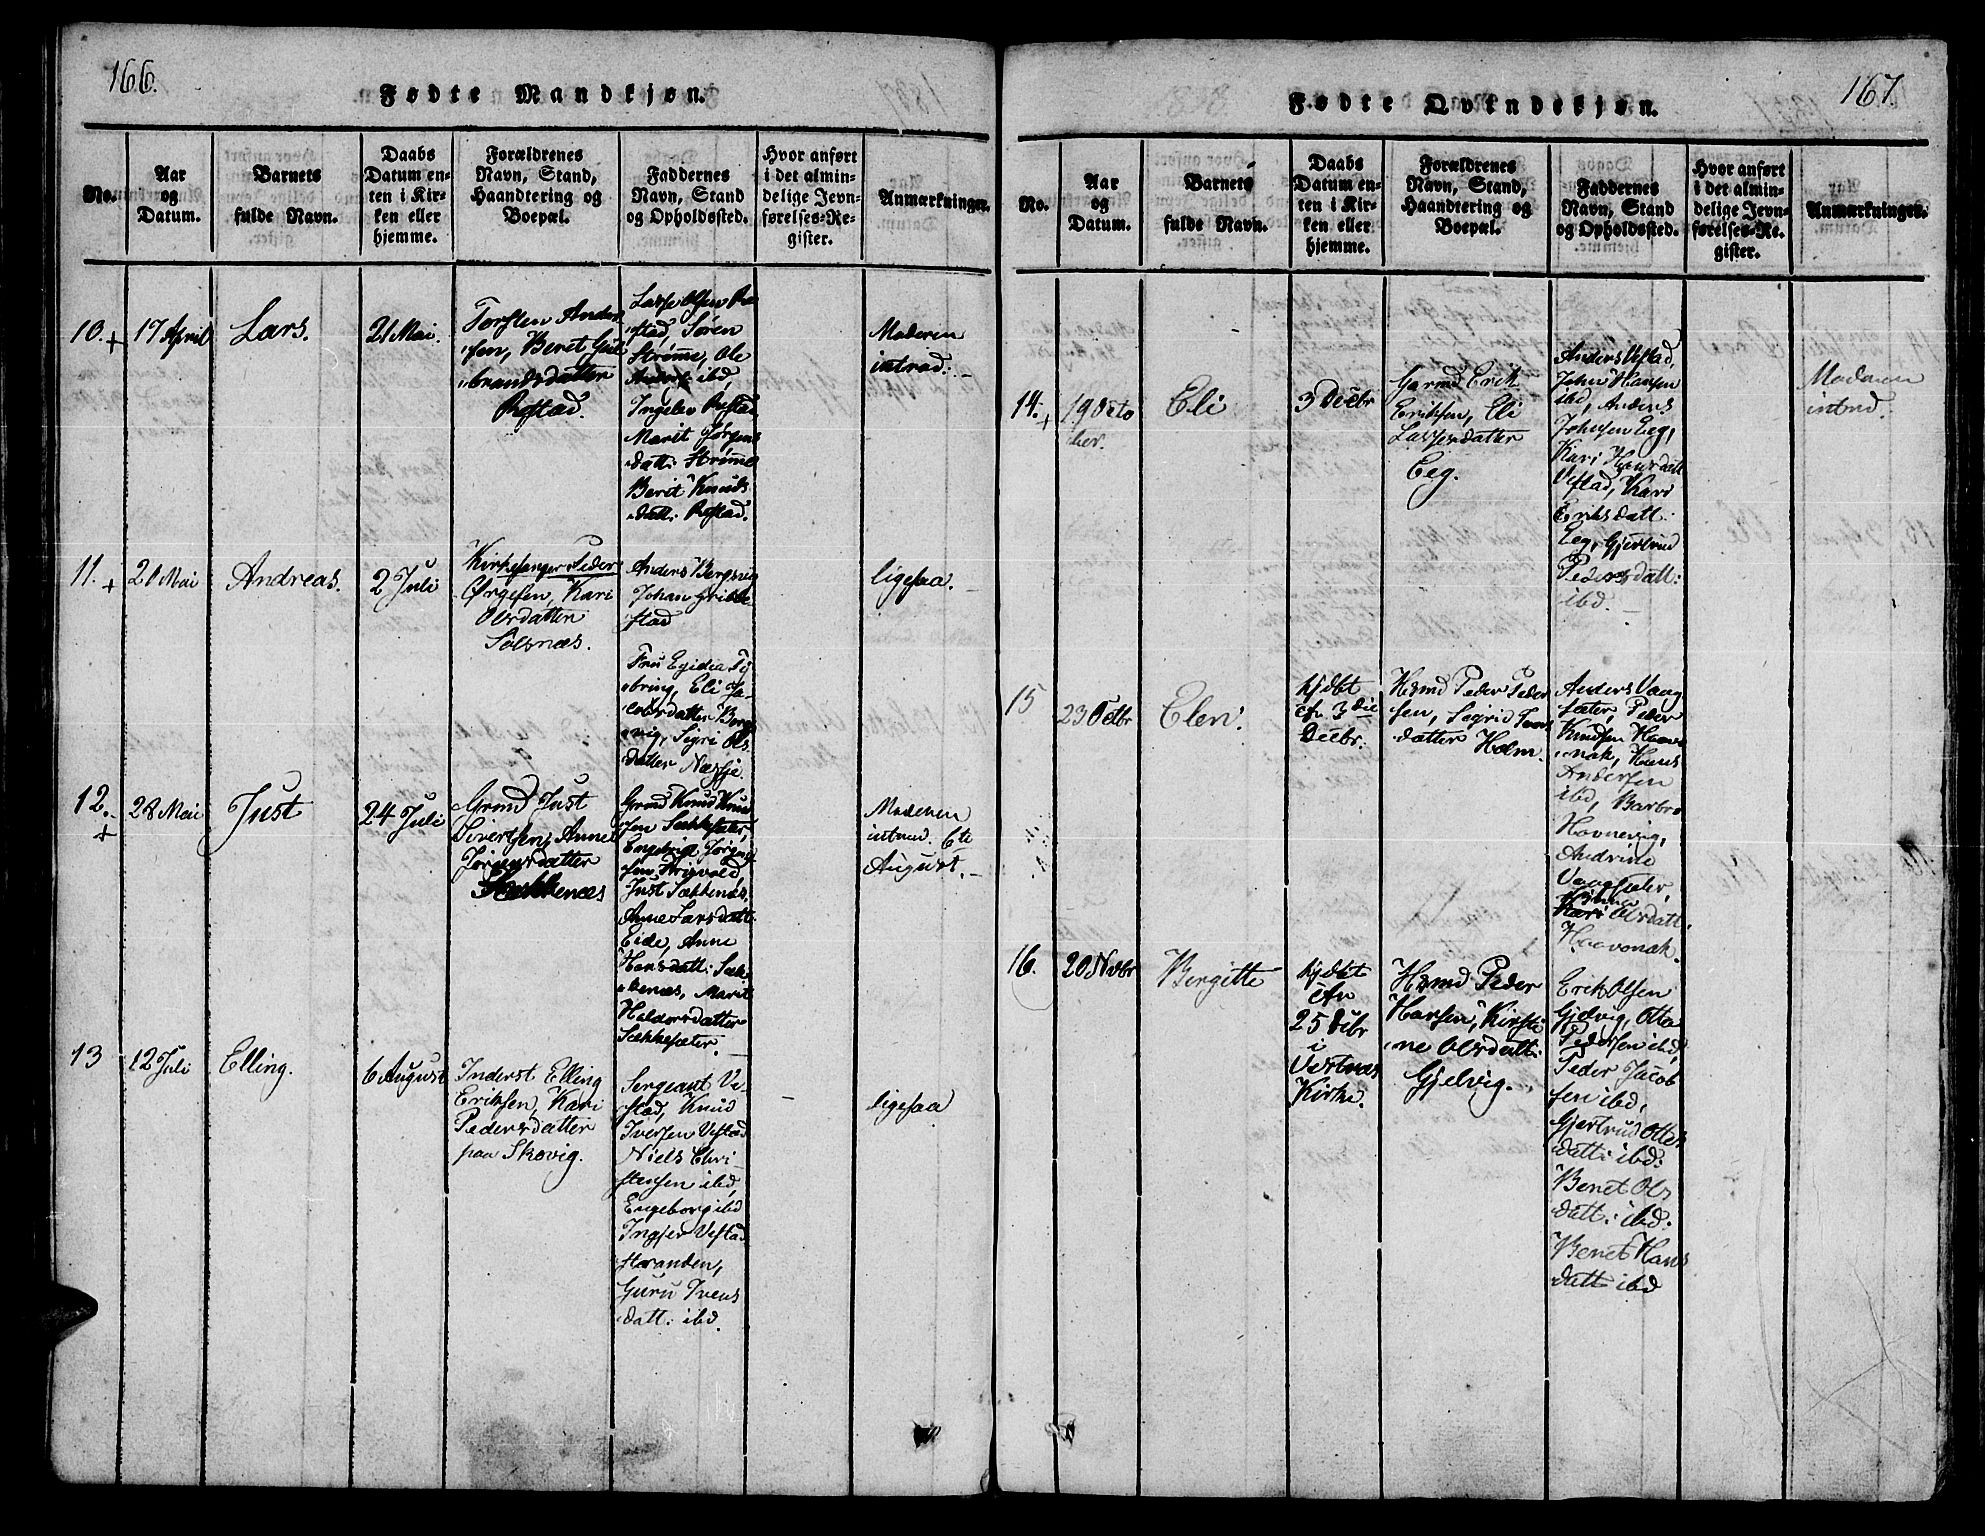 166.
Fødte Mandkjøn.
No.
Aar
og
Datum.
Barnets
fulde Navn.
Daabs
Datum en-
ten i Kir-
ken eller
hjemme.
Forældrenes
Navn, Stand,
Haandtering og
Boepæl.
Faddernes
Navn, Stand
og Opholdssted.
Hvor anført
i det almin-
delige Jevn-
førelses-Re-
gister.
Anmærkninger.
10.
17 April
Lars.
21 Mai.
Torsten Ander
sen, Beret Gul
brandsdatter
Røstad.
Lasse Olsen Rø
stad, Søren
Strømme, Ole
ibd,
Ingelev Røstad
Marit Jørgens
datt: Strømme
Berit Knuds
datt: Røstad.
Moderen
introd:
11.
21 Mai
Andreas.
2 Juli
Kirkesanger Peder
Ørgesen, Kari
Olsdatter
Solsnæs.
Anders Bergsvig
Johan Gribbe
stad
Fru Egidia
Eli Ja-
cobsdatter Berg
vig, Sigri Ols
datter Næsje.
ligesaa.
12.
28 Mai
Just
24 Juli
Grmd Just
Sivertsen, Anne
Jørgensdatter
Sækkenæs
Grmd Knud Knud
sen Sækkesæter,
Engebrigt Jørgen
sen
Just Sækkenæs,
Anne Larsdatt:
Eide, Anne
Hansdatt: Sæk
kenæs, Marit
Haldorsdatter
Sækkesæter.
Moderen
introd. 6te
August.
13
12 Juli
Elling.
6 August
Inderst Elling
Eriksen, Kari
Pedersdatter
paa Skovig.
Sergeant Ve-
stad, Knud
Iversen Vestad
Niels Chri-
stensen ibd,
Engeborg ibd
Ingjer Vestad
stranden,
Guru Ivers
datt: ibd.
ligesaa
167.
Fødte Qvindekjøn.
No.
Aar
og
Datum.
Barnets
fulde Navn.
Daabs
Datum en-
ten i Kir-
ken eller
hjemme.
Forældrenes
Navn, Stand,
Haandtering og
Boepæl.
Faddernes
Navn, Stand
og Opholdssted.
Hvor anført
i det almin-
delige Jevn-
førelses-Re-
gister.
Anmærkninger.
14.
19 Octo
ber.
Eli
3 Decbr
Garmd Erik
Eriksen, Eli
Lassesdatter
Eeg.
Anders Vestad,
John Hansen
ibd, Anders
Johnsen Eeg,
Kari Hansdatt
Vestad, Kari
Eriksdatt:
Eeg, Gjertrud
Pedersdatt:
ibd.
Moderen
introd.
15
23 Octbr
Elen.
hjdbt
cfr. 3die
Decbr.
Hsmd Peder Peder
sen, Sigrid Ivers
datter Holm.
Anders Vaag
sæter, Peder
Knudsen Haavo
nak, Hans
Andersen
ibd, Barbro
Hovnevig,
Andrine
Vaagsæter,
Kari Olsdatt.
Haavonak.
16.
20 Novbr
Bergitte
hjdbt
cfr.
25 Decbr
i
Vestnæs
Kirke.
Hsmd Peder
Hansen, Kirsti
ne Olsdatt:
Gjelvig.
Erik Olsen
Gjelvig, Otta
Pedersen ibd,
Peder Jacob
sen ibd,
Gjertrud Ottes
datt: ibd:
Beret Ols
datt: ibd:
Beret Hans
datt ibd